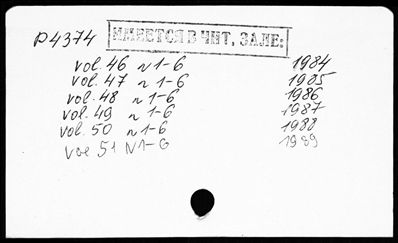 р4374
ИМЕЕТСЯ В ЧИТ. ЗАЛЕ:
vol. 46 n 1-6 1984
vol. 47 n 1-6 1985
vol. 48 n 1-6 1986
vol. 49 n 1-6 1987
vol. 50 n 1-6 1988
vol 51 N1-6 1989